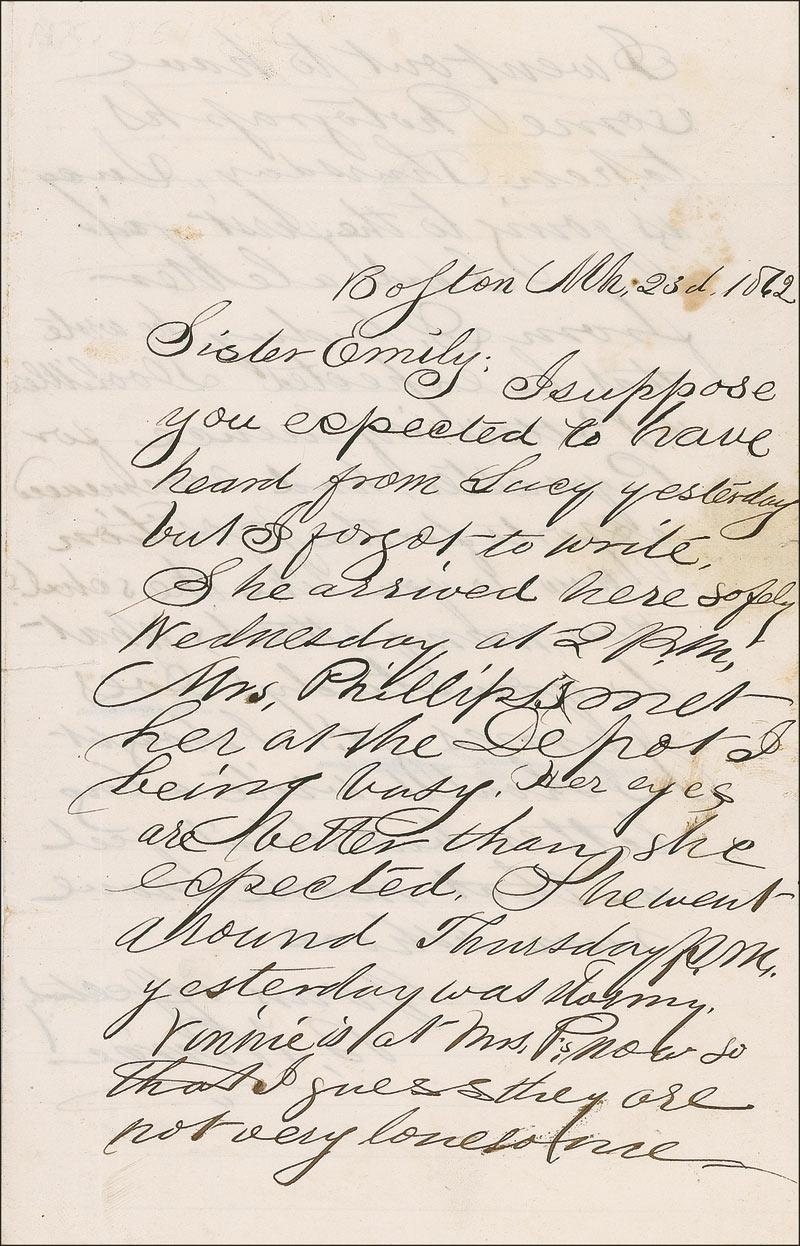 Boston Mh. 23d. 1862
Sister Emily;
I suppose
you expected to have
heard from Lucy yesterday
but I forgot to write.
She arrived here safely
Wednesday at 2 P.M.
Mrs. Phillips met
her at the Depot I
being busy. Her eyes
are better than she
expected. She went
around Thursday P.M.
yesterday was stormy.
Vinnie is at Mrs. P's now so
that I guess they are
not very lonesome